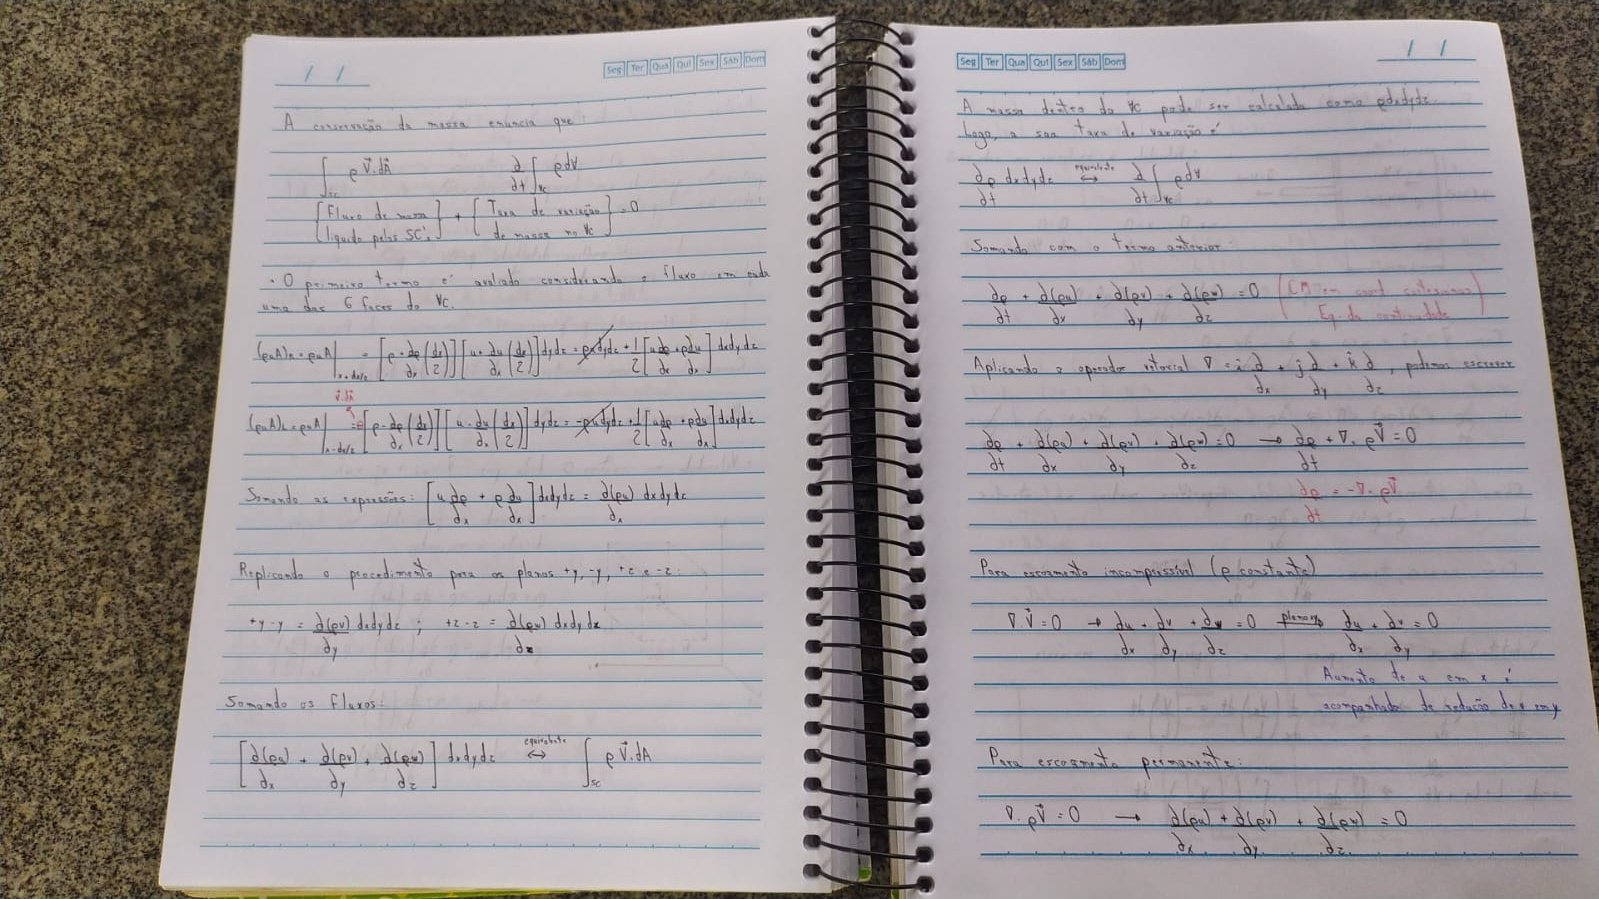 / /
Seg Ter Qua Qui Sex Sáb Dom
A conservação da massa enuncia que:
∫_SC ρV⃗.dA⃗   ∂/∂t ∫_VC ρdV
{Fluxo de massa líquido pelas SC's} + {Taxa de variação de massa no VC} = 0
• O primeiro termo é avaliado considerando o fluxo em cada
uma das 6 faces do VC.
(ρuA)R = ρuA|x+dx/2 = [ρ + ∂ρ/∂x (dx/2)][u + ∂u/∂x (dx/2)] dydz = ρudydz + 1/2 [u∂ρ/∂x + ρ∂u/∂x] dxdydz
V⃗.dA⃗
(ρuA)L = ρuA|x-dx/2 = ⊖[ρ - ∂ρ/∂x (dx/2)][u - ∂u/∂x (dx/2)] dydz = -ρudydz + 1/2 [u∂ρ/∂x + ρ∂u/∂x] dxdydz
Somando as expressões: [u ∂ρ/∂x + ρ ∂u/∂x] dxdydz = ∂(ρu)/∂x dxdydz
Replicando o procedimento para os planos +y, -y, +z e -z:
+y-y = ∂(ρv)/∂y dxdydz ; +z-z = ∂(ρw)/∂z dxdydz
Somando os fluxos:
[∂(ρu)/∂x + ∂(ρv)/∂y + ∂(ρw)/∂z] dxdydz ↔ equivalente ∫_SC ρV⃗.dA
Seg Ter Qua Qui Sex Sáb Dom
/ /
A massa dentro do VC pode ser calculada como ρdxdydz.
Logo, a sua taxa de variação é
∂ρ/∂t dxdydz ↔ equivalente ∂/∂t ∫_VC ρdV
Somando com o termo anterior:
∂ρ/∂t + ∂(ρu)/∂x + ∂(ρv)/∂y + ∂(ρw)/∂z = 0 (CM em coord. cartesianas
Eq. da continuidade)
Aplicando o operador vetorial ∇ = î ∂/∂x + ĵ ∂/∂y + k̂ ∂/∂z, podemos escrever
∂ρ/∂t + ∂(ρu)/∂x + ∂(ρv)/∂y + ∂(ρw)/∂z = 0 → ∂ρ/∂t + ∇. ρV⃗ = 0
∂ρ/∂t = -∇. ρV⃗
Para escoamento incompressível (ρ constante)
∇.V⃗ = 0 → ∂u/∂x + ∂v/∂y + ∂w/∂z = 0 plano xy ∂u/∂x + ∂v/∂y = 0
Aumento de u em x é
acompanhado de redução de v em y
Para escoamento permanente:
∇. ρV⃗ = 0 → ∂(ρu)/∂x + ∂(ρv)/∂y + ∂(ρw)/∂z = 0